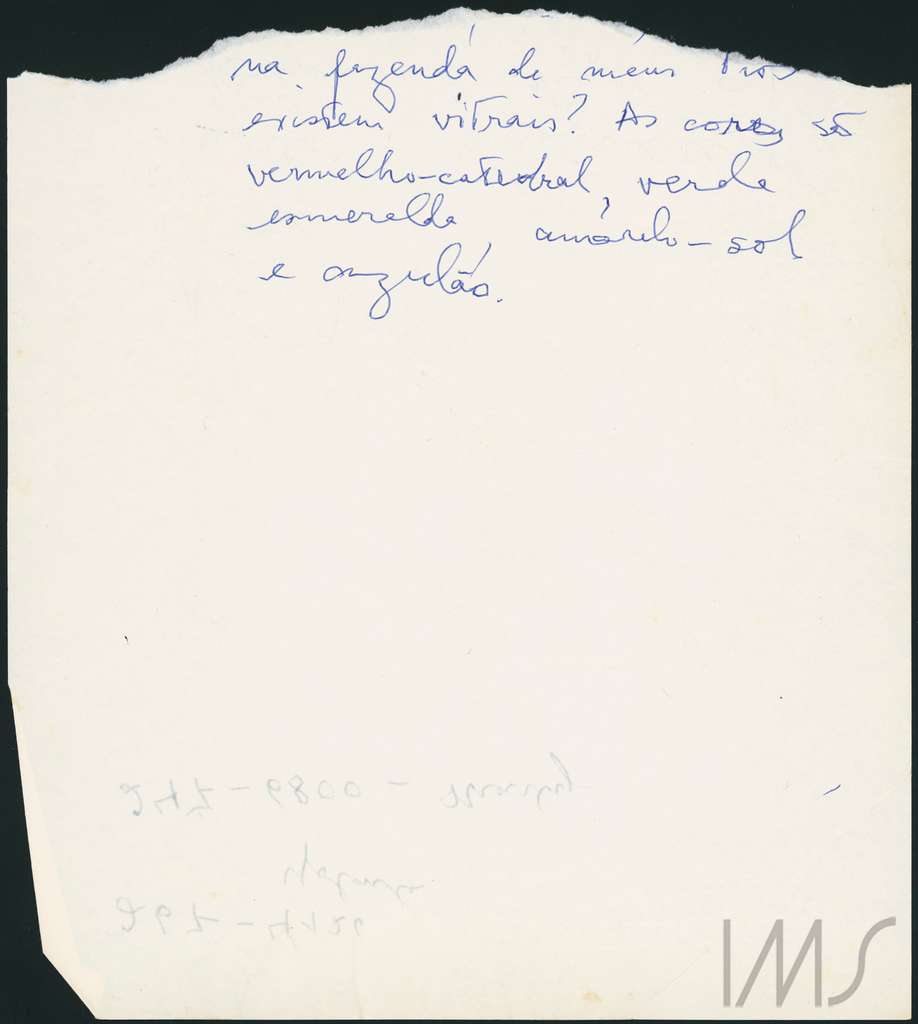 na fazenda de meus tios
existem vitrais? As cores são
vermelho-catedral, verde
esmeralda, amarelo-sol
e azulão.
- 0089 - 
IMS